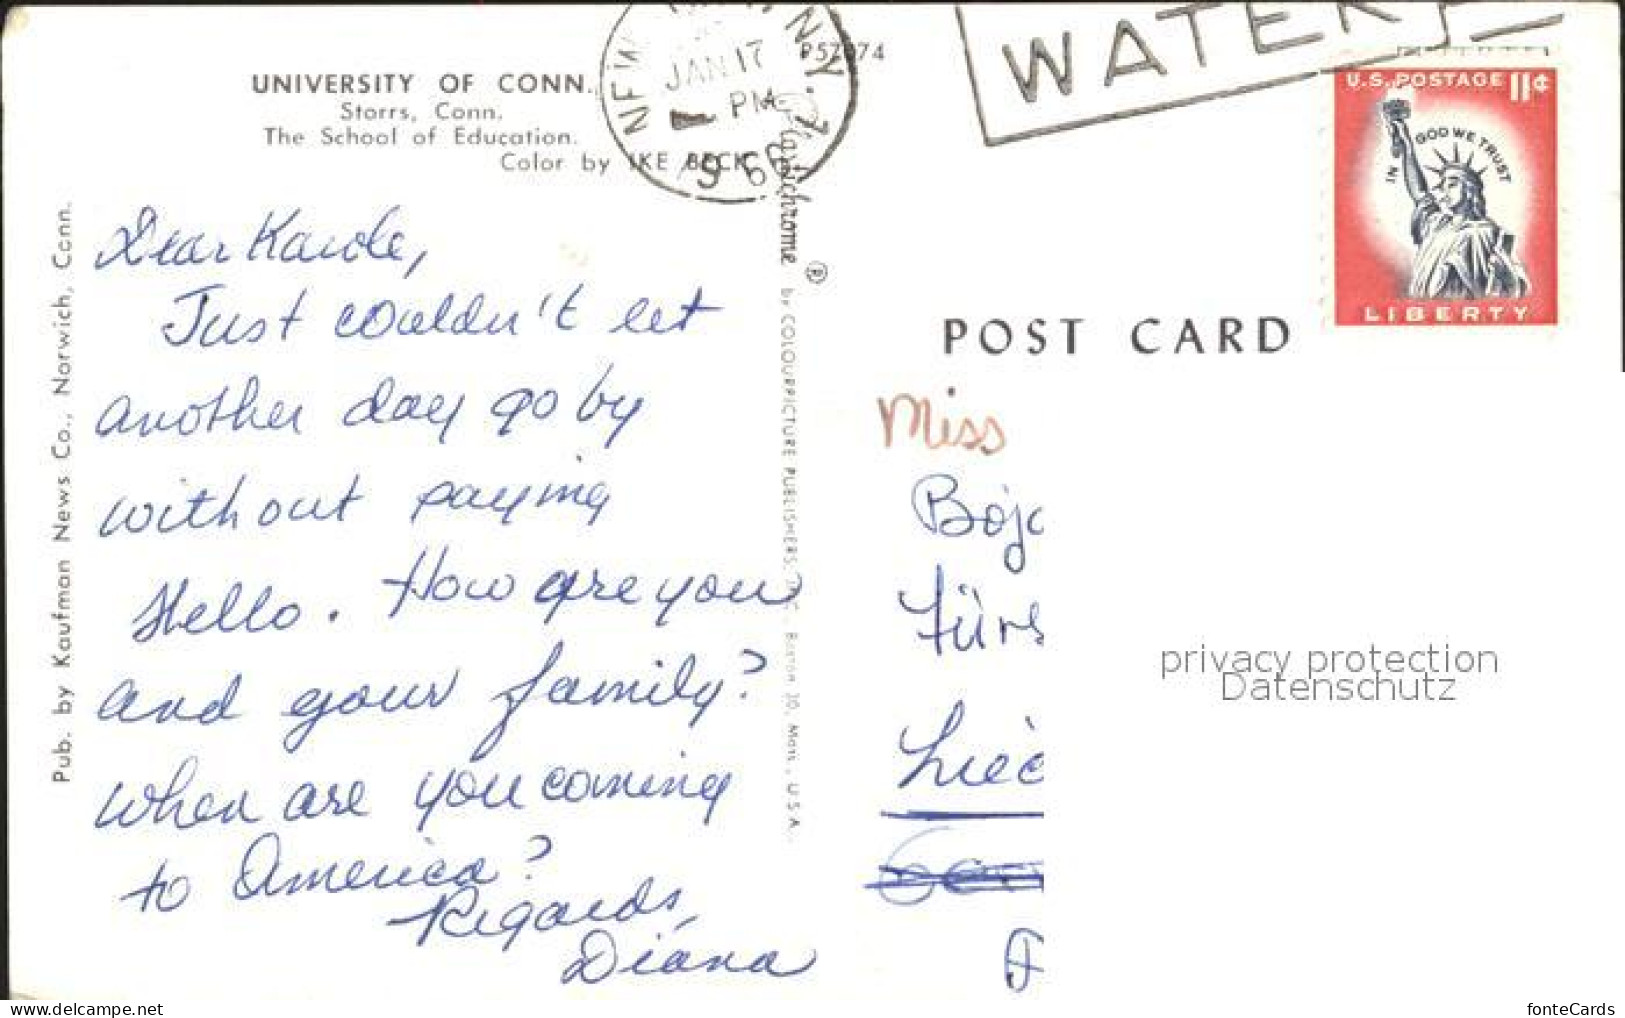 UNIVERSITY OF CONN.
Storrs, Conn.
The School of Education.
Color by IKE BECK
Pub. by Kaufman News Co., Norwich, Conn.
Dear Karole,
Just couldn't let
another day go by
without paying
Hello. How are you
and your family?
when are you coming
to America?
Regards,
Diana
Plastichrome ® by COLOURPICTURE PUBLISHERS, INC., Boston 30, Mass., U.S.A.
NEW N.Y. 1
JAN 17
PM
1966
WATER
U.S. POSTAGE 11¢
IN GOD WE TRUST
LIBERTY
POST CARD
Miss
privacy protection
Datenschutz
www.delcampe.net
fonteCards